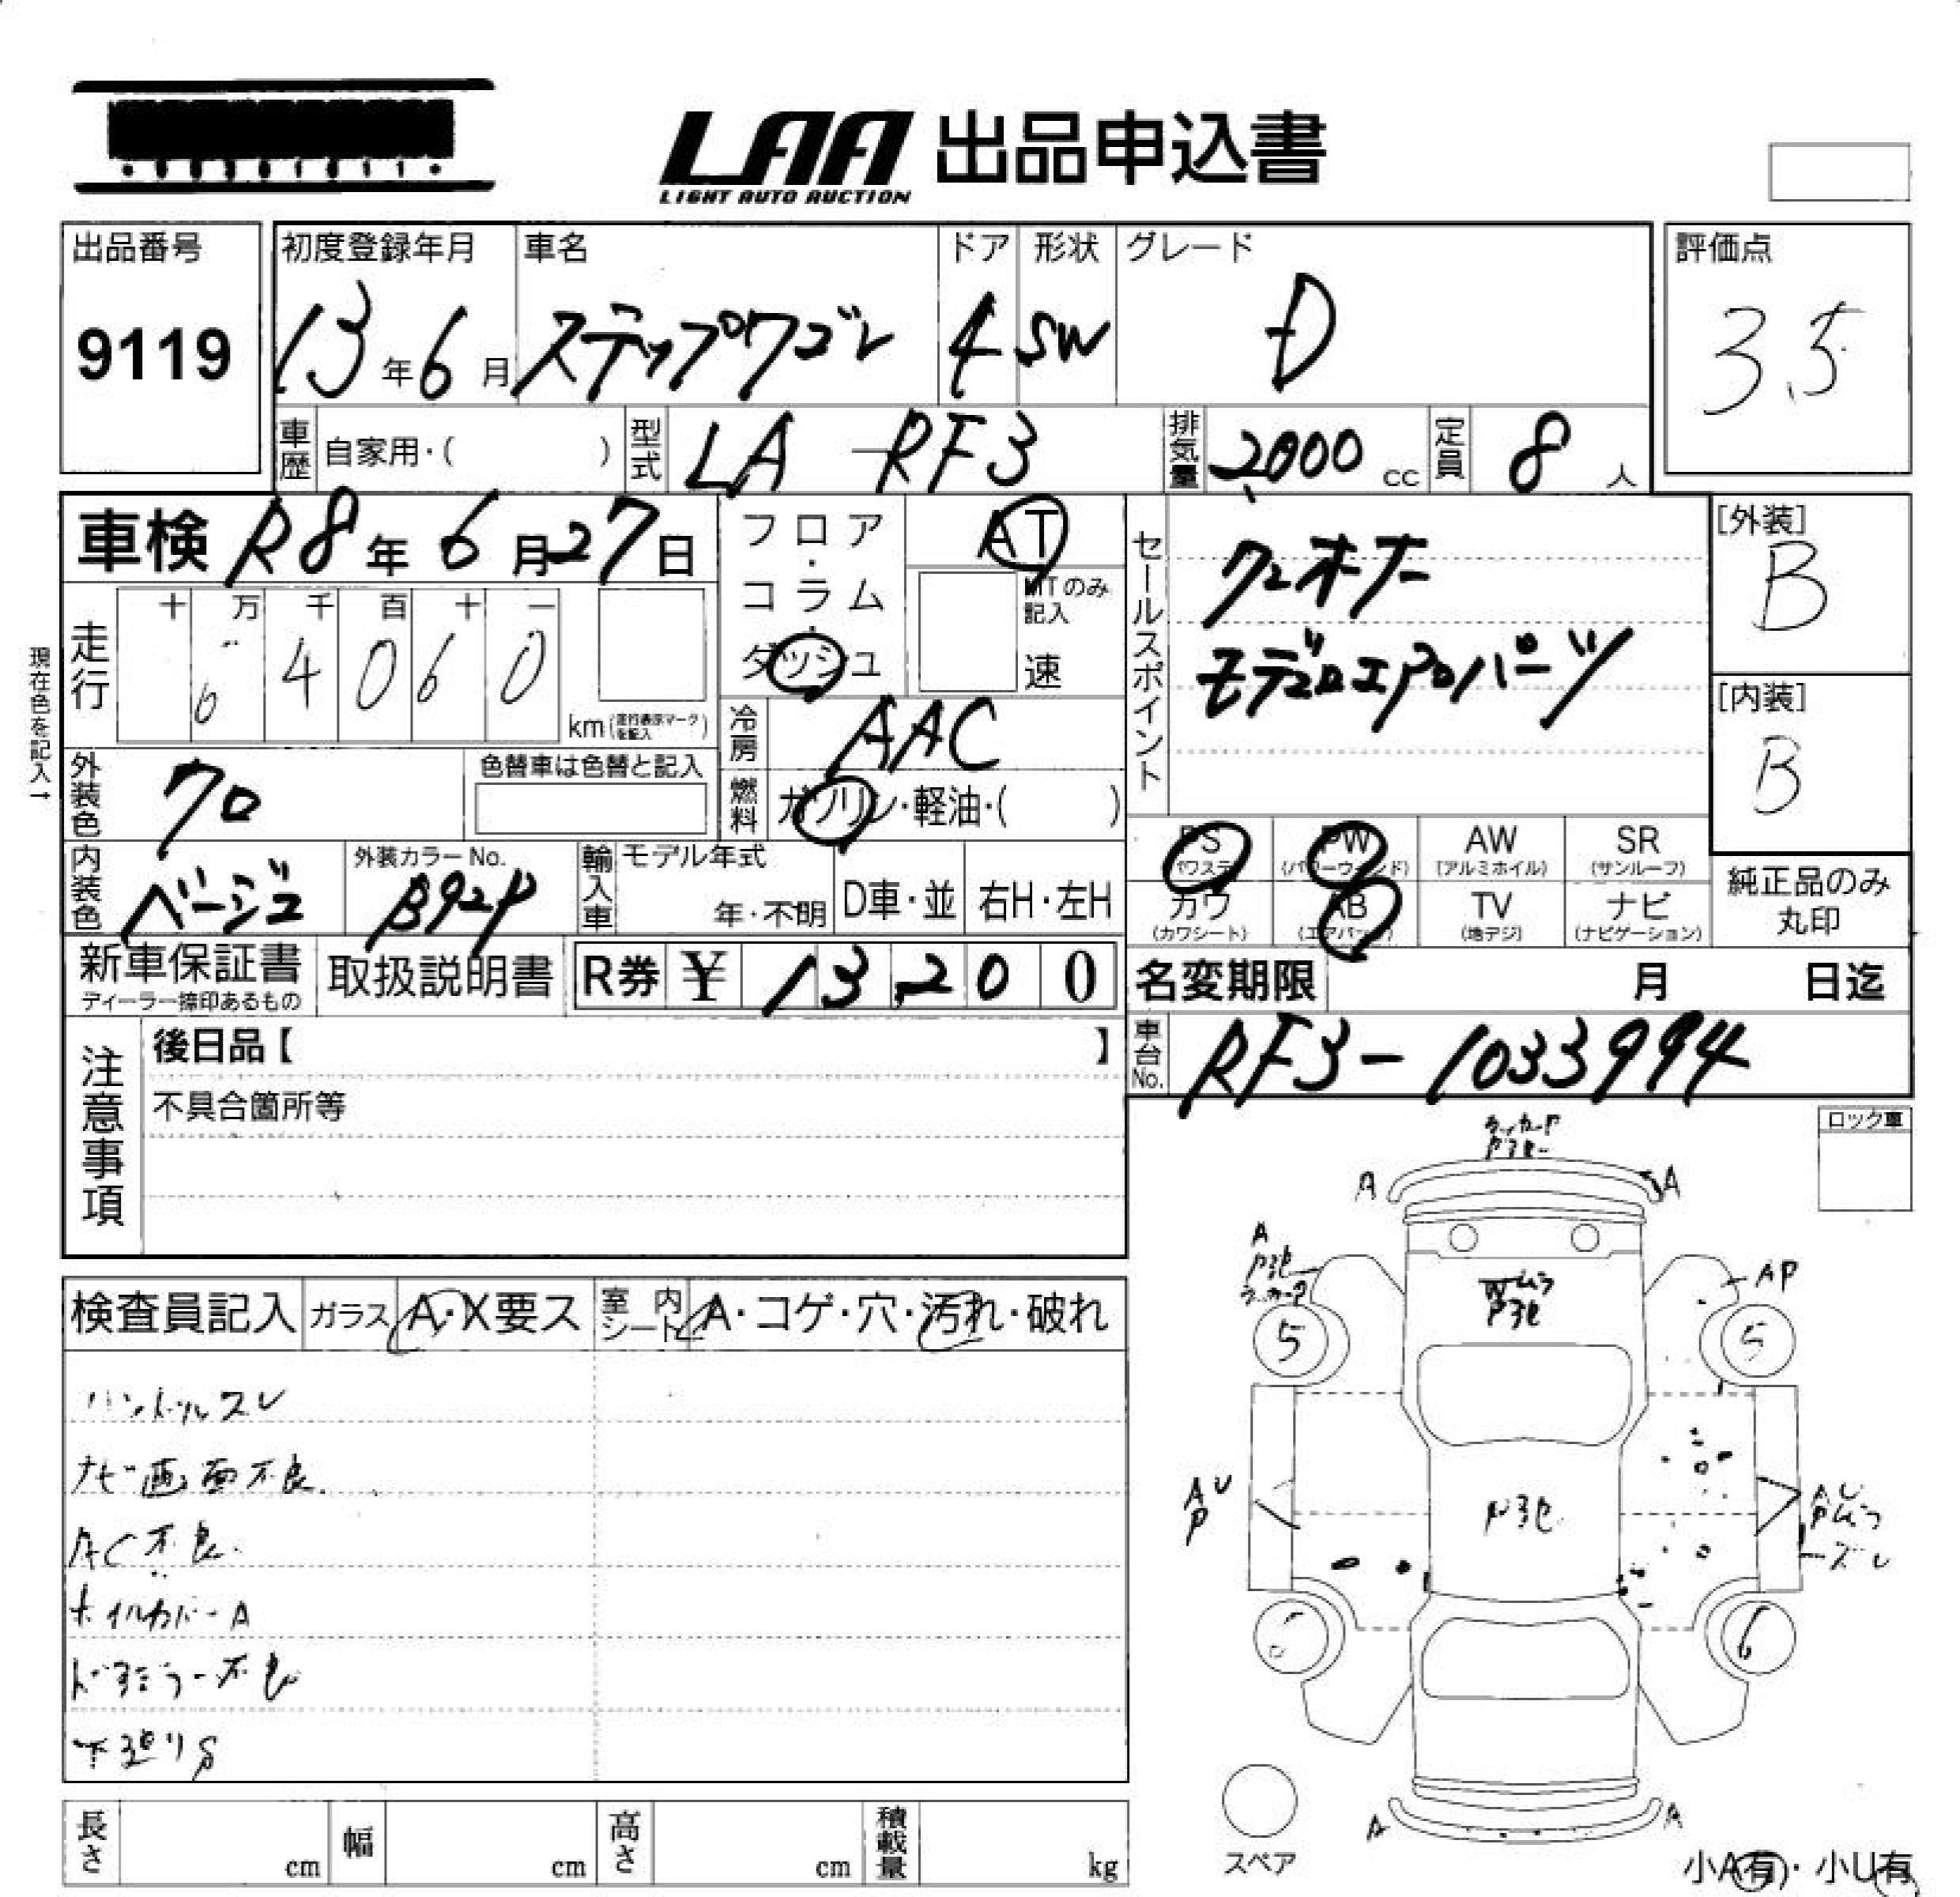 LAA 出品申込書
LIGHT AUTO AUCTION
出品番号
9119
初度登録年月
13年6月
車名
ステップワゴン
ドア
4
形状
SW
グレード
D
評価点
3.5
車歴 自家用・( )
型式 LA-RF3
排気量 2000 cc
定員 8 人
車検 R8年 6月27日
現在色を記入→
走行 十 万 千 百 十 一
64060
km (走行表示マークを記入)
フロア・コラム・ダッシュ
AT
MTのみ記入
速
冷房 AAC
燃料 ガソリン・軽油・( )
セールスポイント
ワンオーナー
モデューロエアロパーツ
[外装]
B
[内装]
B
外装色 クロ
色替車は色替と記入
内装色 ベージュ
外装カラーNo.
B92P
輸入車 モデル年式
年・不明
D車・並
右H・左H
PS (パワステ)
PW (パワーウィンド)
AW (アルミホイル)
SR (サンルーフ)
カワ (カワシート)
AB (エアバッグ)
TV (地デジ)
ナビ (ナビゲーション)
純正品のみ
丸印
新車保証書
ディーラー捺印あるもの
取扱説明書
R券 ¥ 13200
名変期限 月 日迄
車台No. RF3-1033994
注意事項
後日品【 】
不具合箇所等
ロック車
検査員記入 ガラス A・X要ス
室内シート A・コゲ・穴・汚れ・破れ
ハンドルスレ
ナビ画面不良
AC不良
ホイルカバーA
ドアミラー不良
下廻りS
A
A
A
AP
5
5
AU
P
6
A
A
スペア
長さ cm
幅 cm
高さ cm
積載量 kg
小A有・小U有